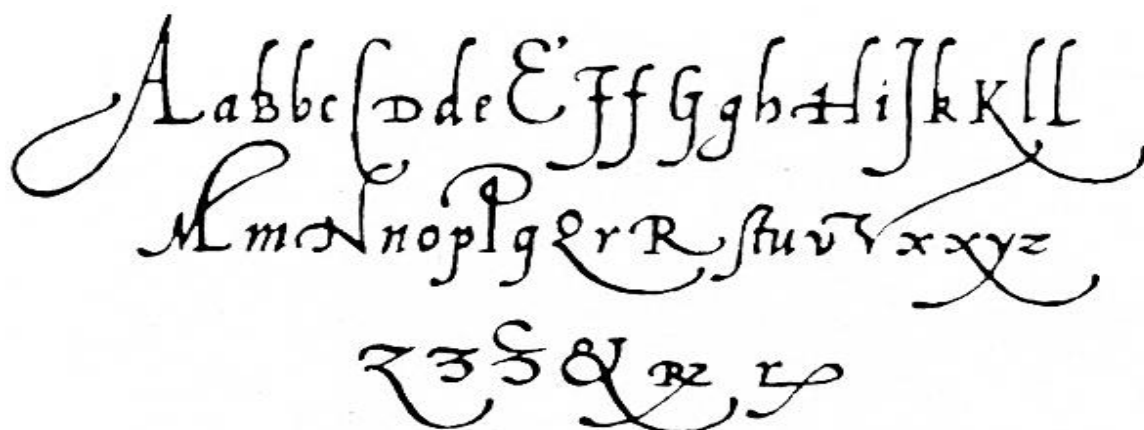 AaBbcCDdeE'FfGghHiJkKlL
MmNnopPqQrRſtuvVxxyz
Zzz&Rr